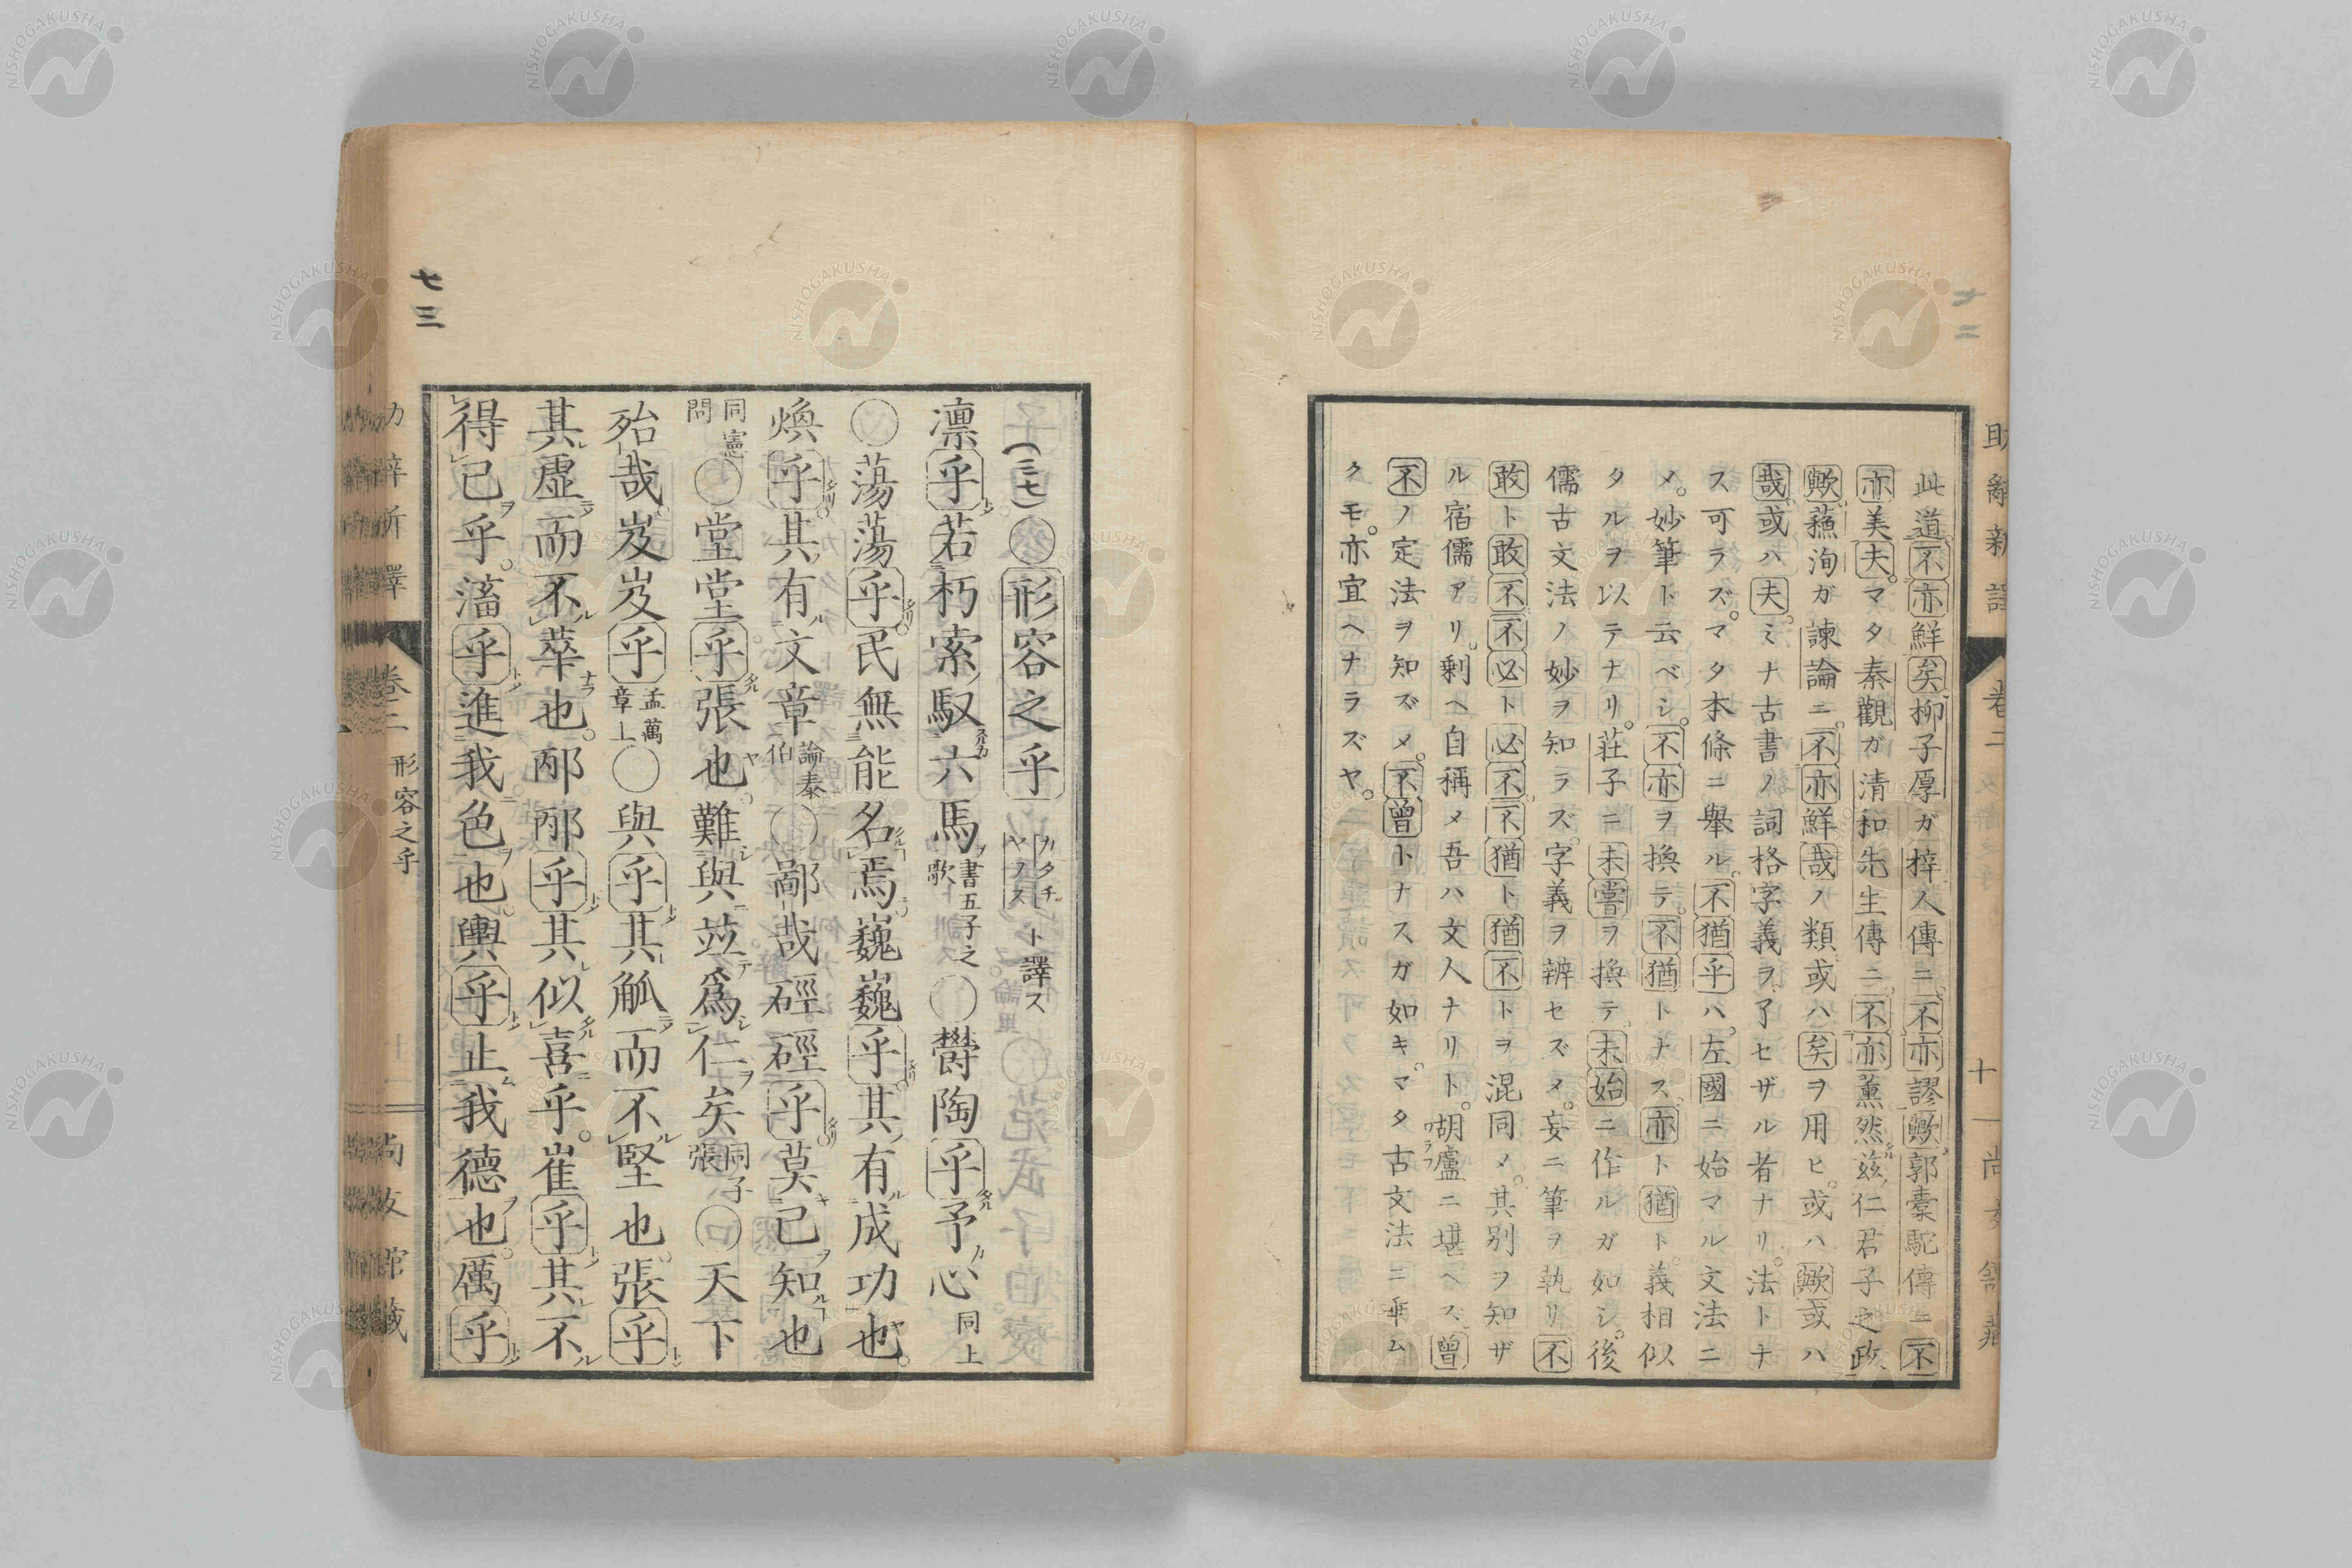 此道不亦鮮矣柳子厚ガ梓人傳ニ不亦謬歟郭橐駝傳ニ不
亦美夫マタ秦觀ガ清和先生傳ニ不亦薰然茲仁君子之政
歟蘓洵ガ諫論ニ不亦鮮哉ノ類或ハ矣ヲ用ヒ或ハ歟或ハ
哉或ハ夫ミナ古書ノ詞格字義ヲ了セザル者ナリ法トナ
ス可ラズマタ本條ニ舉ル不猶乎ハ左國ニ始マル文法ニ
メ妙筆ト云ベシ不亦ヲ換テ不猶トナス亦ト猶ト義相似
タルヲ以テナリ莊子ニ未嘗ヲ換テ未始ニ作ルガ如シ後
儒古文法ノ妙ヲ知ラズ字義ヲ辨セズメ妄ニ筆ヲ執リ不
敢ト敢不不必ト必不不猶ト猶不トヲ混同メ其別ヲ知ザ
ル宿儒アリ剩ヘ自稱メ吾ハ文人ナリト胡盧ニ堪ヘズ曾
不ノ定法ヲ知ズメ不曾トナスガ如キマタ古文法ニ乖ム
クモ亦宜ヘナラズヤ
助辭新譯 卷二 十一 尚友館藏
七二
七三
(三七)〇形容之乎 カタチヤウス ト譯ス
凛乎若朽索馭六馬 書五子之歌 〇鬱陶乎予心 同上
〇蕩蕩乎民無能名焉巍巍乎其有成功也
煥乎其有文章 論泰伯 〇鄙哉硜硜乎莫己知也
同憲問 〇堂堂乎張也難與竝爲仁矣 同子張 〇天下
殆哉岌岌乎 孟萬章上 〇與乎其觚而不堅也張乎
其虛而不華也邴邴乎其似喜乎崔乎其不
得已乎滀乎進我色也與乎止我德也厲乎
卷二 形容之乎